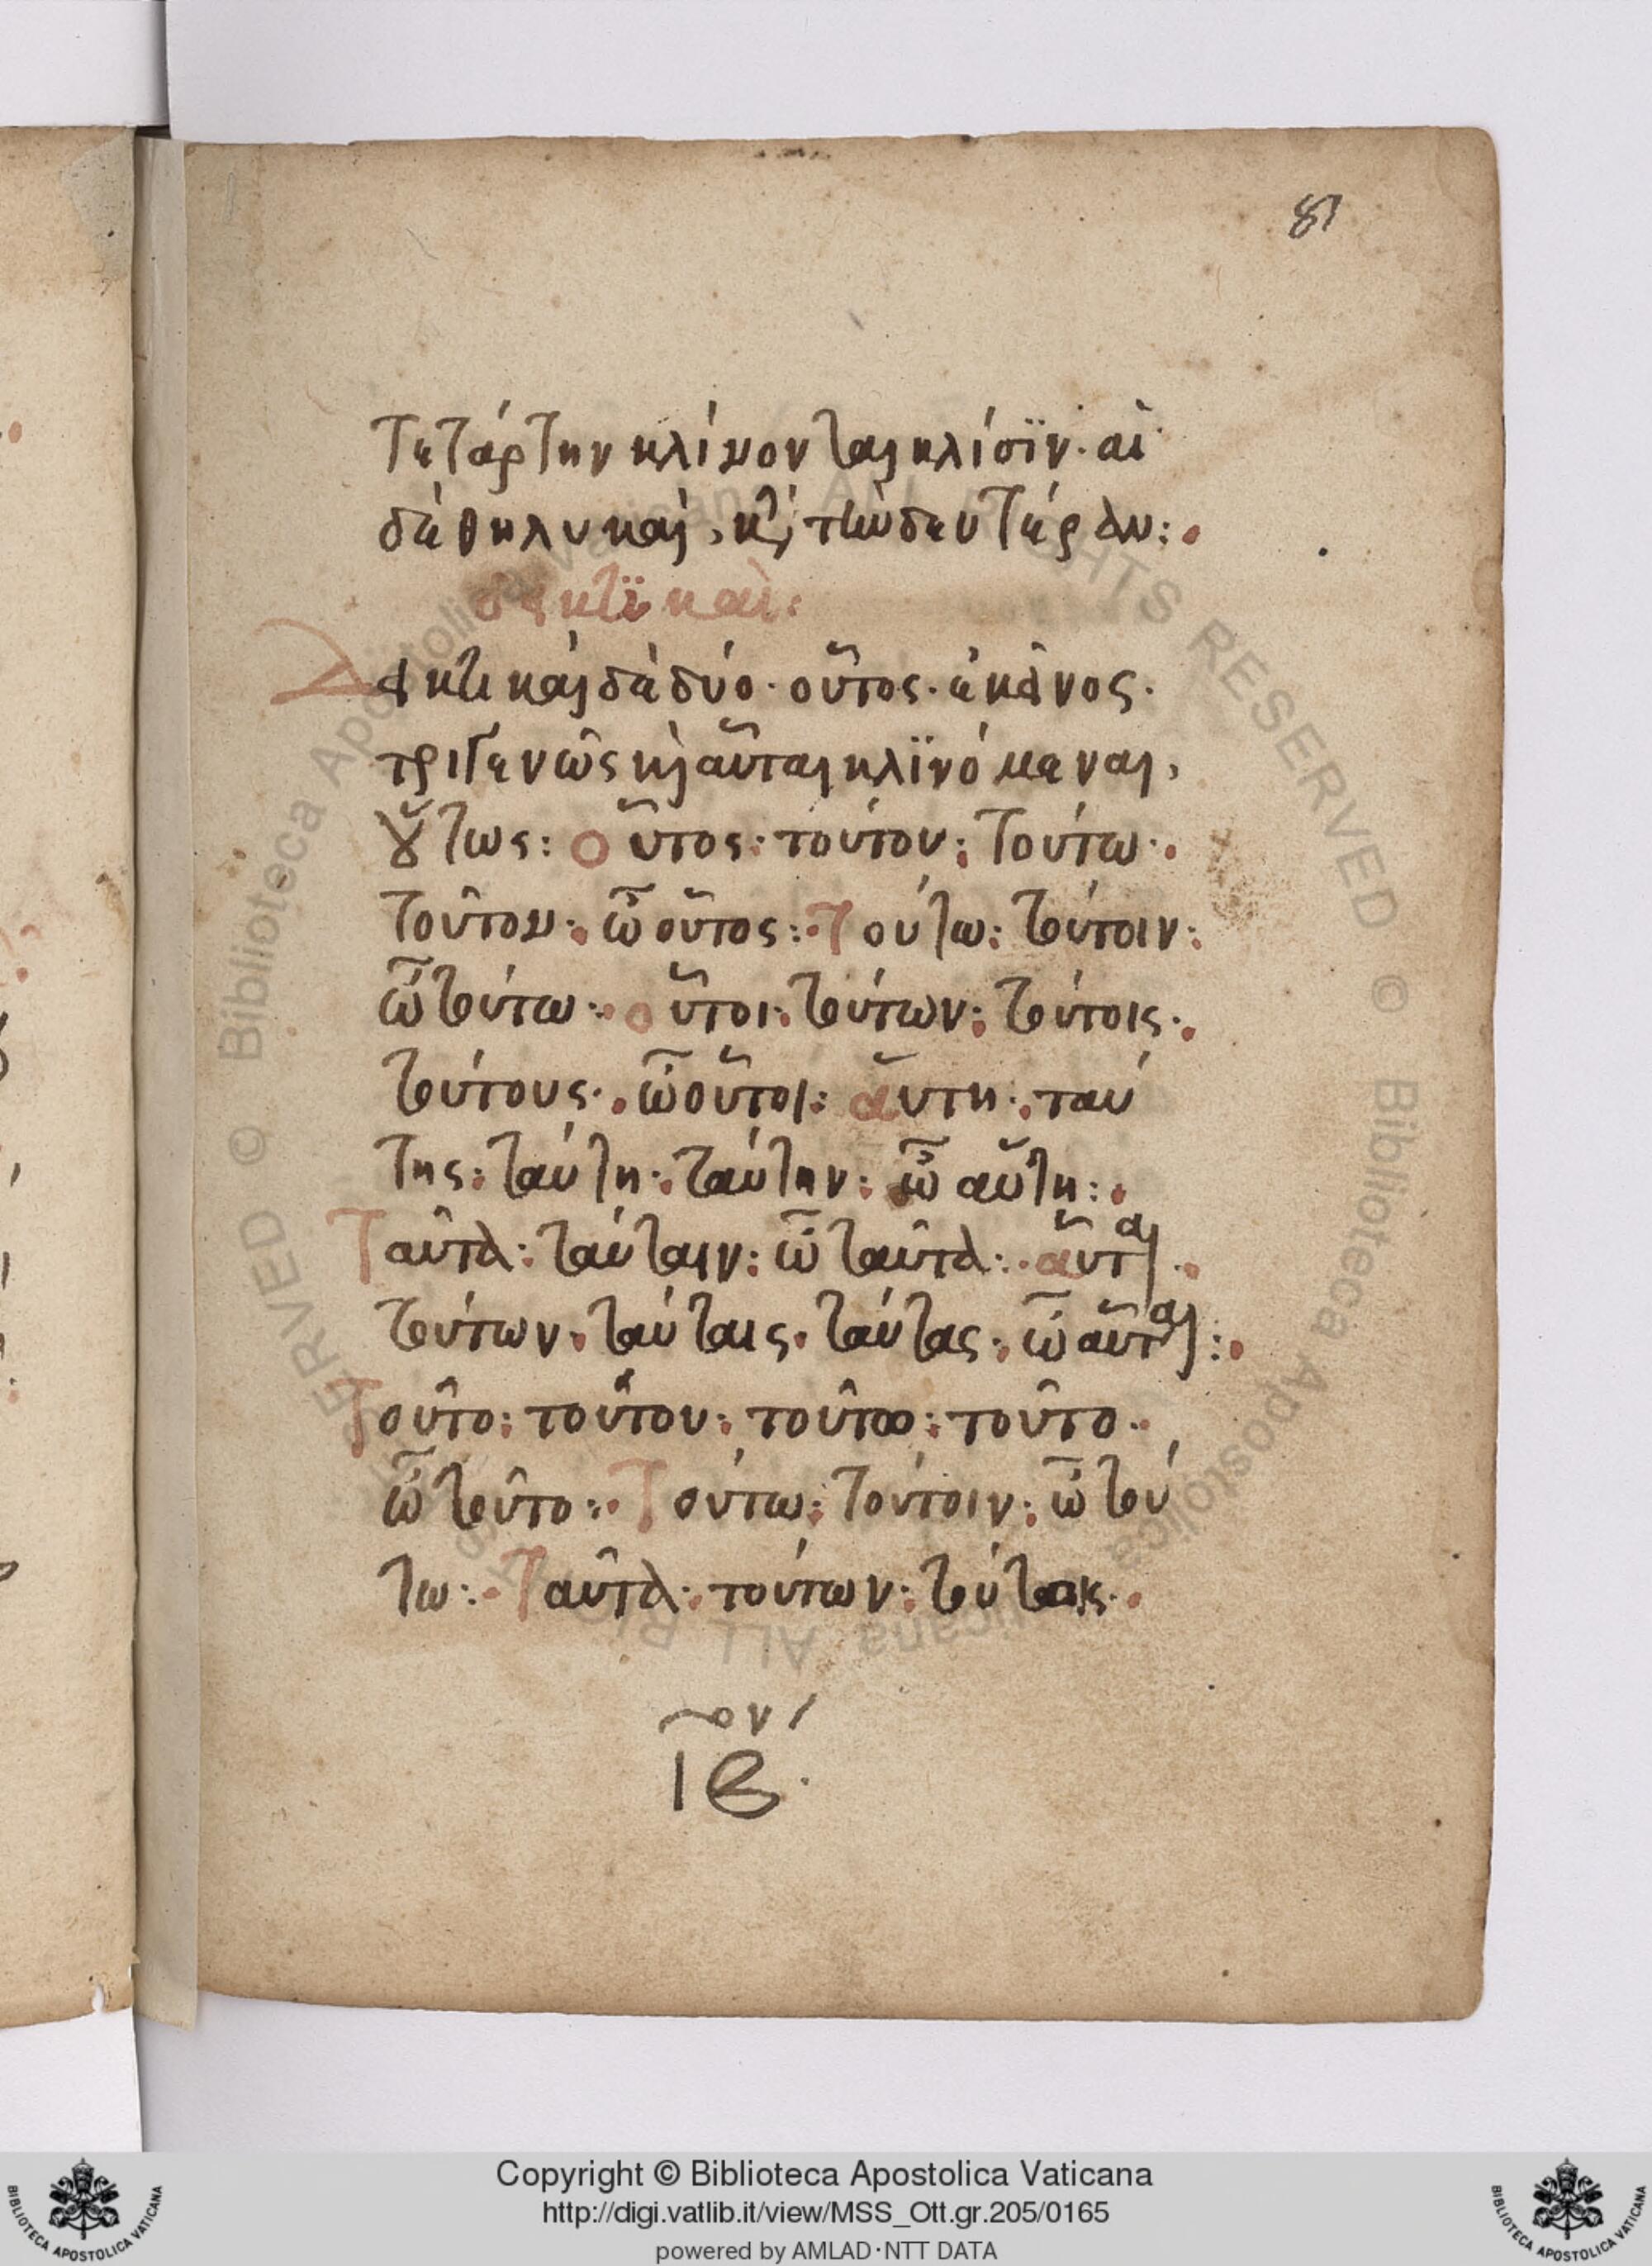 81
τετάρτην κλίνονται κλίσϊν· αἱ
δὲ θηλυκαὶ, κ(αὶ) τὴν δευτέραν:
δεικτϊκαὶ:
Δεικτικαὶ δὲ δύο· οὗτος· ἐκεῖνος·
τριγενῶς κ(αὶ) αὗται κλϊνόμεναι,
οὕτως: οὗτος· τούτου: τούτω·
τοῦτον: ὦ οὗτος: τούτω: τούτοιν:
ὦ τούτω: οὗτοι: τούτων: τούτοις·
τούτους· ὦ οὗτοι: αὕτη: ταύ
της: ταύτη: ταύτην: ὦ αὕτη:
Ταῦτα: ταύταιν: ὦ ταῦτα: αὗται·
τούτων· ταύταις· ταύτας: ὦ αὗται:
Τοῦτο: τούτου: τοῦτω: τοῦτο·
ὦ τοῦτο: τούτω: τούτοιν: ὦ τού
τω: Ταῦτα: τούτων: τούτοις·
ιβον
Copyright © Biblioteca Apostolica Vaticana
http://digi.vatlib.it/view/MSS_Ott.gr.205/0165
powered by AMLAD·NTT DATA
BIBLIOTECA APOSTOLICA VATICANA
BIBLIOTECA APOSTOLICA VATICANA